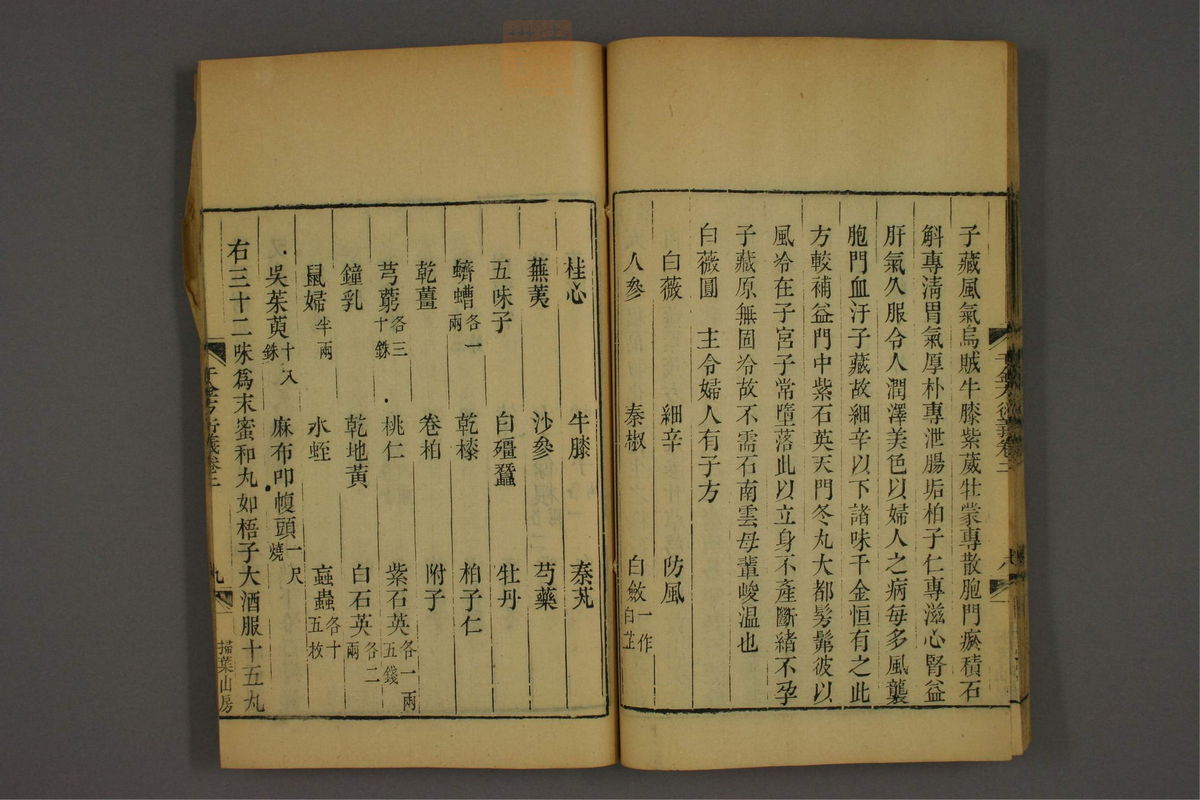 子藏風氣烏賊牛膝紫葳牡蒙專散胞門瘀積石
斛專清胃氣厚朴專泄腸垢柏子仁專滋心腎益
肝氣久服令人潤澤美色以婦人之病每多風襲
胞門血汙子藏故細辛以下諸味千金恒有之此
方較補益門中紫石英天門冬丸大都髣髴彼以
風冷在子宮子常墮落此以立身不產斷緒不孕
子藏原無固冷故不需石南雲母輩峻温也
白薇圓 主令婦人有子方
白薇 細辛 防風
人參 秦椒 白斂一作白芷
桂心 牛膝 秦艽
蕪荑 沙參 芍藥
五味子 白殭蠶 牡丹
蠐螬各一兩 乾榛 柏子仁
乾薑 卷柏 附子
芎藭各三十銖 桃仁 紫石英各一兩五錢
鐘乳 乾地黃 白石英各二兩
鼠婦半兩 水蛭 蝱蟲各十五枚
吳茱萸十八銖 麻布叩幞頭一尺燒
右三十二味爲末蜜和丸如梧子大酒服十五丸
千金方衍義卷二
九
掃葉山房